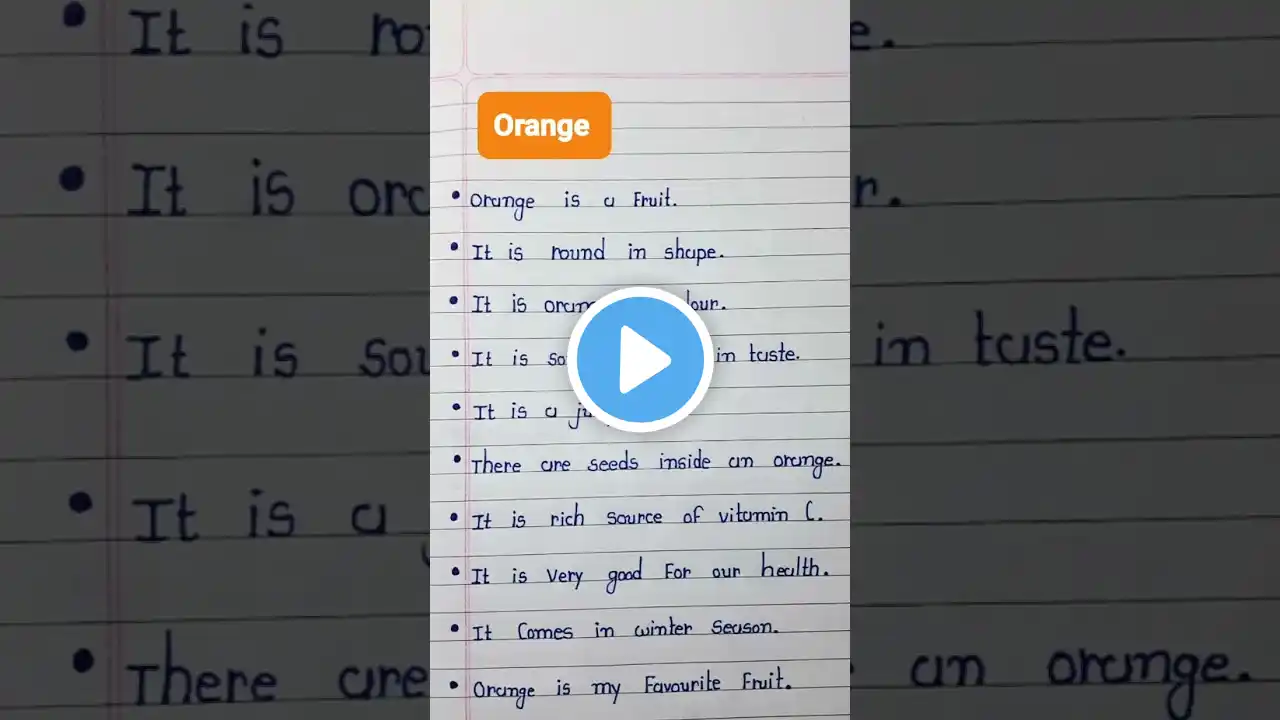 Orange
• Orange is a Fruit.
• It is round in shape.
• It is lour.
• It is in taste.
• It is a
• There are seeds inside an orange.
• It is rich source of vitamin C.
• It is very good For our health.
• It Comes in winter Season.
• Orange is my Favourite Fruit.